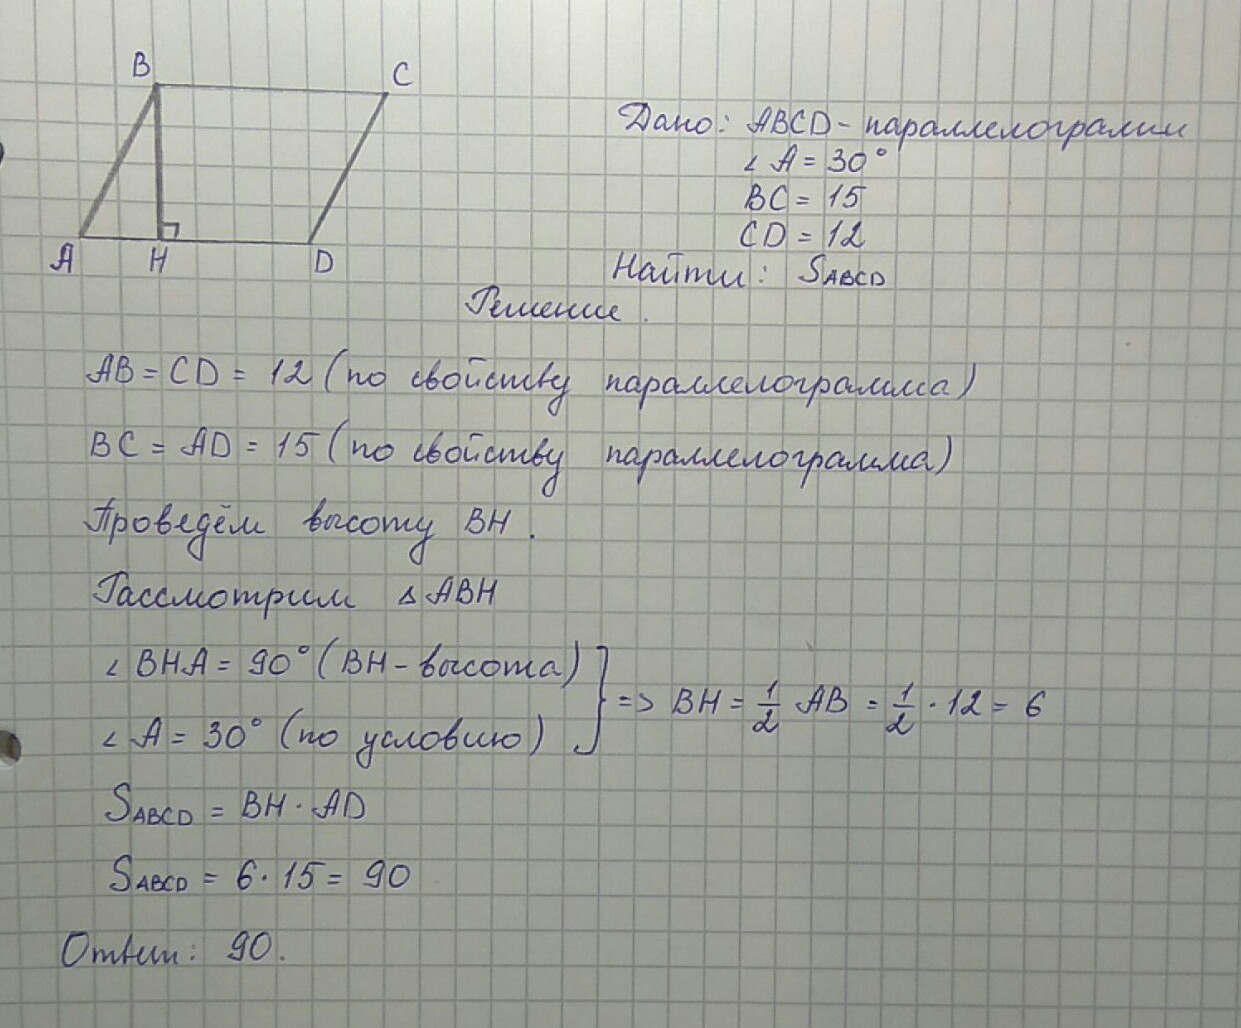 B
C
A
H
D
Дано: ABCD - параллелограмм
∠ A = 30°
BC = 15
CD = 12
Найти: SABCD
Решение.
AB = CD = 12 (по свойству параллелограмма)
BC = AD = 15 (по свойству параллелограмма)
Проведём высоту BH.
Рассмотрим △ ABH
∠ BHA = 90° (BH - высота)
∠ A = 30° (по условию)
=> BH = 1/2 AB = 1/2 · 12 = 6
SABCD = BH · AD
SABCD = 6 · 15 = 90
Ответ: 90.